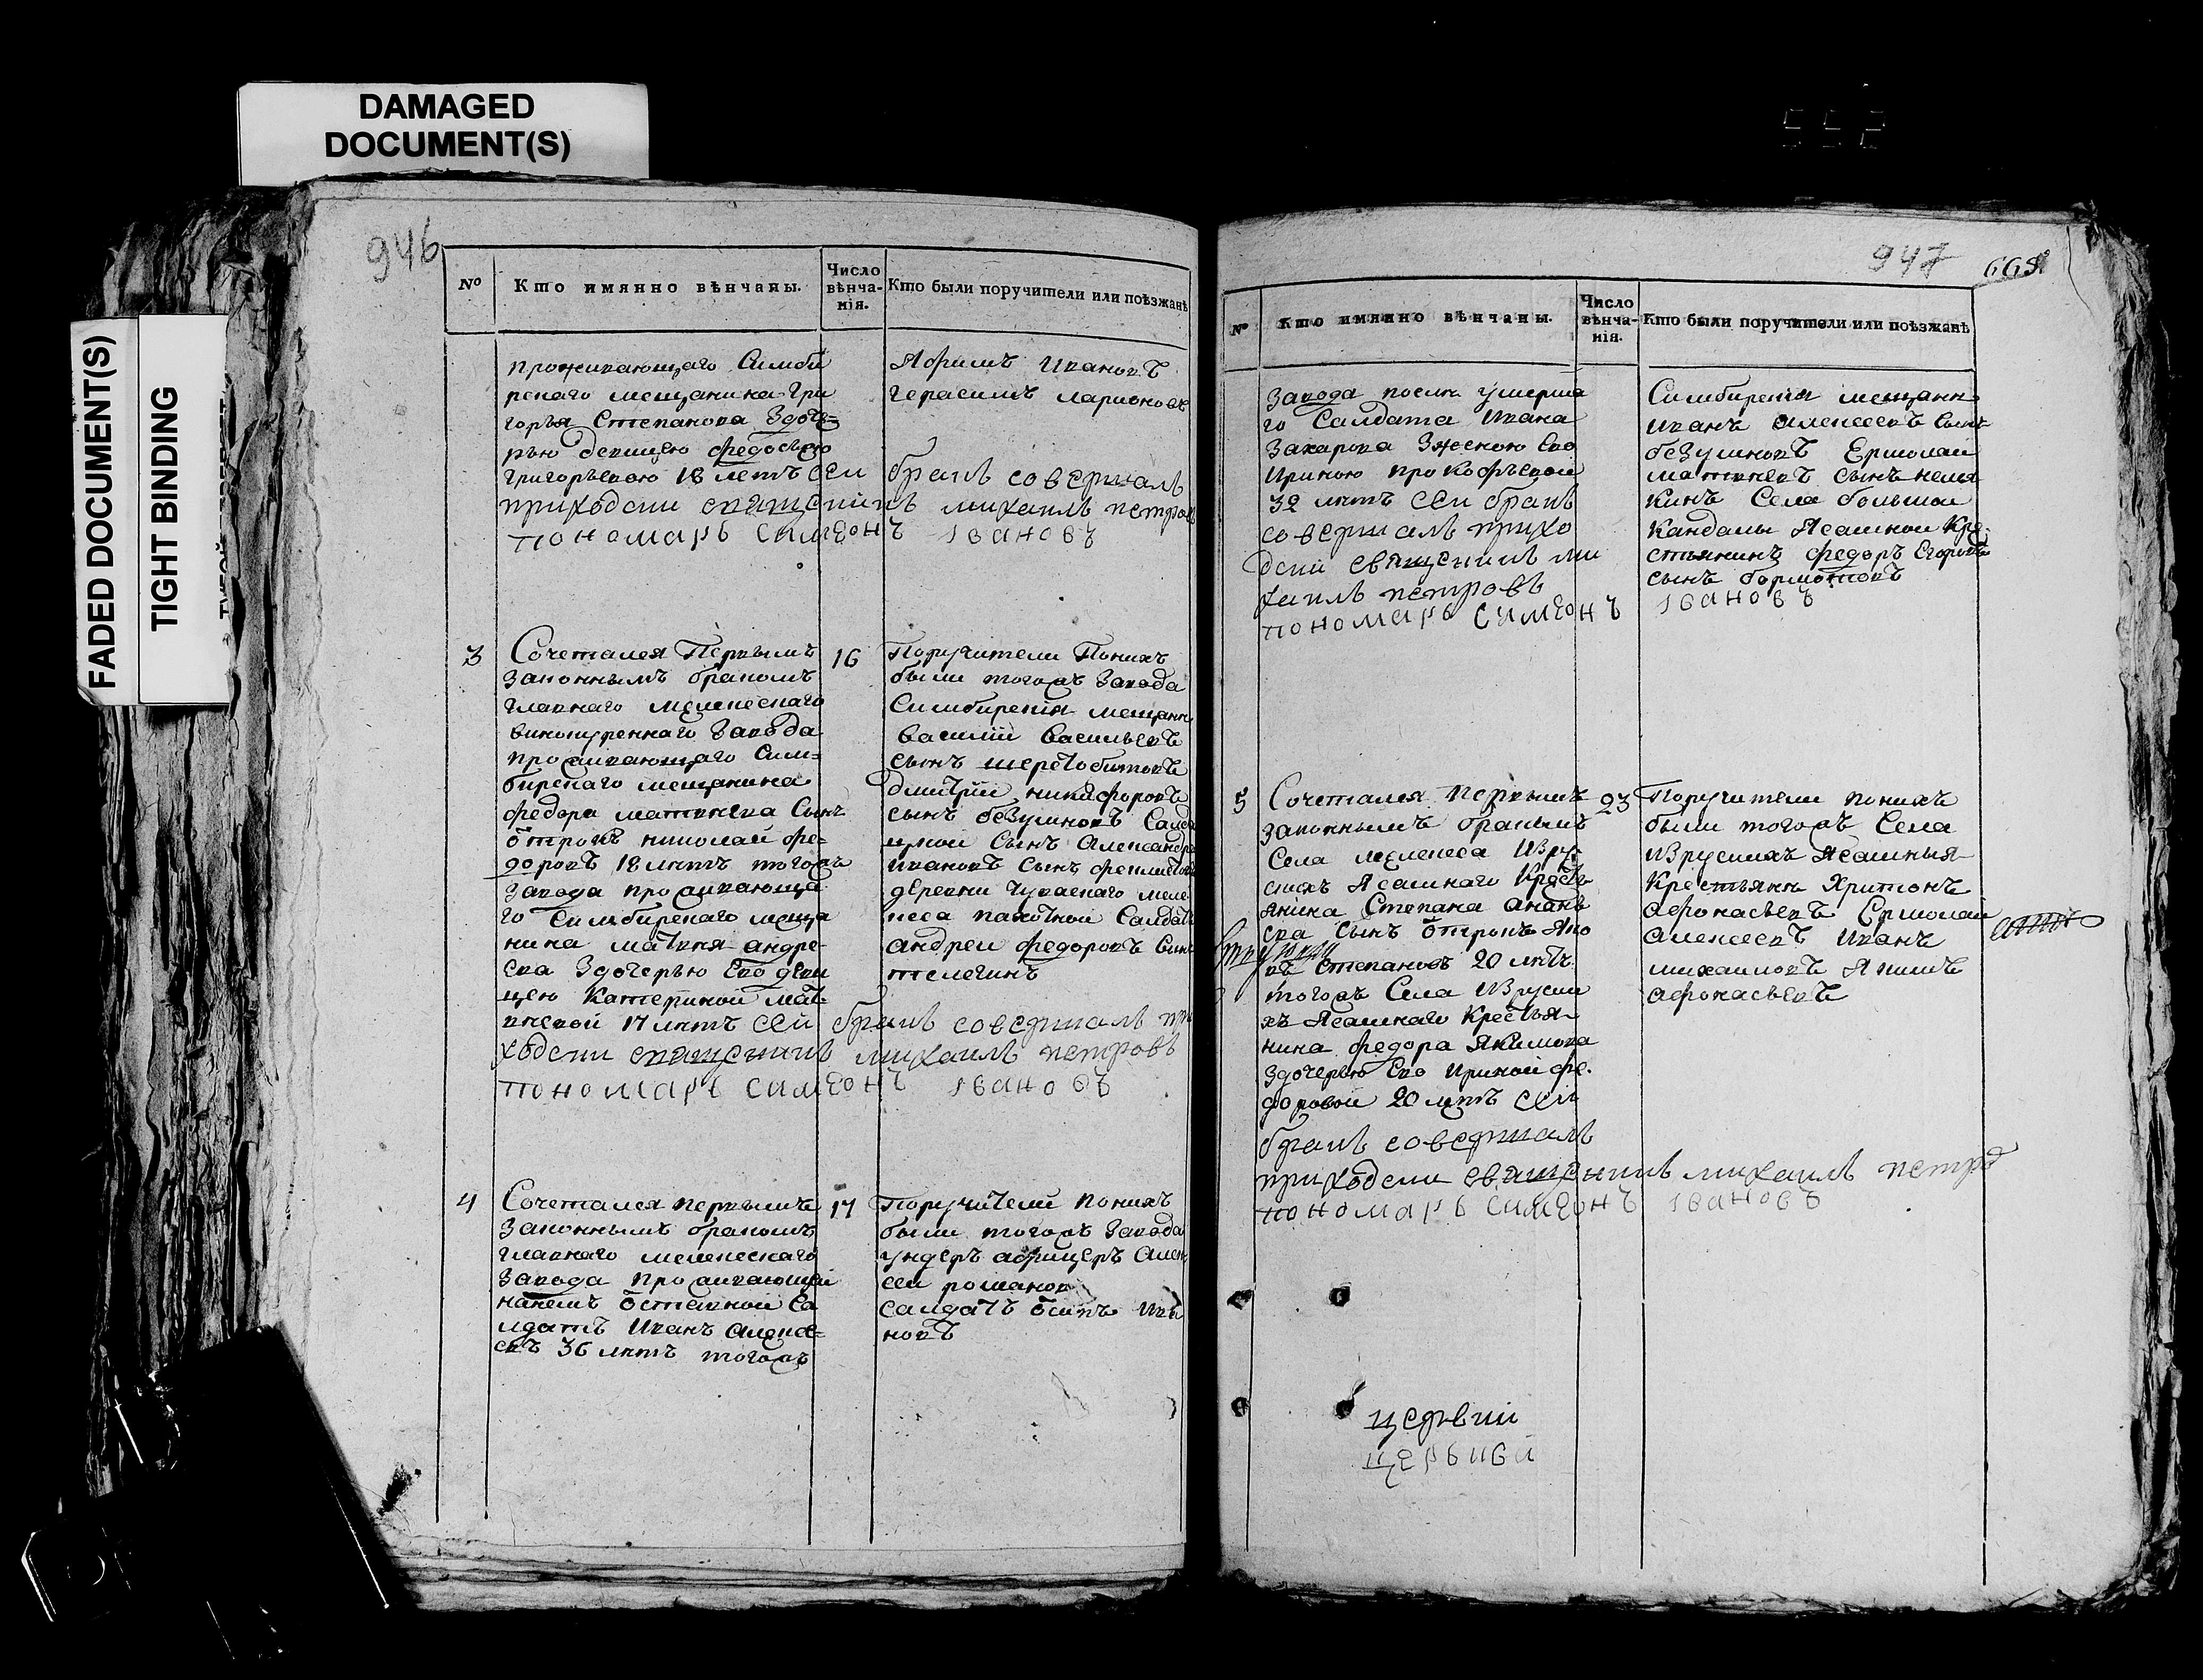 DAMAGED
DOCUMENT(S)
FADED DOCUMENT(S)
TIGHT BINDING
946
№
Кто имянно вѣнчаны.
Число
вѣнча-
нія.
Кто были поручители или поѣзжанѣ
проживающаго Симби
рскаго мещанина Гри
горья Степанова Здоче-
рью девицею федосьею
григорьевою 18 летъ сей
бракъ совершалъ
приходски священникъ михаилъ петровъ
пономарь симеонъ івановъ
Ивановъ
герасимъ ларионовъ
3
Сочетался Первымъ
Законнымъ бракомъ
главнаго мелекескаго
винокуреннаго Завода
проживающаго Сим-
бирскаго мещанина
федора матвеева Сынъ
отрокъ николай фе-
доровъ 18 летъ тогожъ
Завода проживающа
го Симбирскаго меща
нина матвея андре-
ева Здочерью Ево деви
цею Катериной мат-
веевой 17 летъ сей бракъ совершалъ при
ходски священникъ михаилъ петровъ
пономарь симеонъ івановъ
16
Поручители Понихъ
были тогожъ Завода
Симбирскія мещани
василий васильевъ
сынъ шерстобитовъ
дмитрий никифоровъ
сынъ безумновъ
Сынъ Александра
ивановъ Сынъ
деревни меле
кеса Салдатъ
андреи федоровъ Сынъ
телегинъ
4
Сочетался первымъ
Законнымъ бракомъ
главнаго мелекескаго
Завода проживающий
нанемъ отставной Са
лдатъ Иванъ алексе-
евъ 36 летъ тогожъ
17
Поручители понихъ
были тогожъ Завода
ундеръ афицеръ Алек
сеи романовъ
салдатъ осипъ Ива
новъ
947
665
№
Кто имянно вѣнчаны.
Число
вѣнча-
нія.
Кто были поручители или поѣзжанѣ
Завода после умерша
го Салдата Ивана
Захарова Зженою Ево
Ириною прокофьевой
32 летъ сей бракъ
совершалъ прихо
дски священникъ ми
хаилъ петровъ
пономарь симеонъ івановъ
Симбирския мещани
иванъ алексеевъ сынъ
безумновъ Ермолаи
матвеевъ сынъ
Села большой
Кандалы Ясашной Кре-
стьянинъ федоръ Егоровъ
сынъ бормотовъ
5
Сочетался первымъ
законнымъ бракымъ
Села мелекеса Изру-
скихъ Ясашнаго Кресть
янина Степана
ева Сынъ отрокъ Яко
въ Степановъ 20 летъ
тогожъ Села Изруски
хъ Ясашнаго Крестья-
нина федора Якимова
Здочерью Ево Ириной фе-
доровой 20 летъ сей
бракъ совершалъ
приходски священникъ михаилъ петро
пономарь симеонъ івановъ
23
Поручители понихъ
были тогожъ Села
изрускихъ Ясашныя
Крестьяни Харитонъ
афонасьевъ Ермолаи
алексеевъ Иванъ
михаиловъ Якимъ
афонасьевъ
церкви
церькви